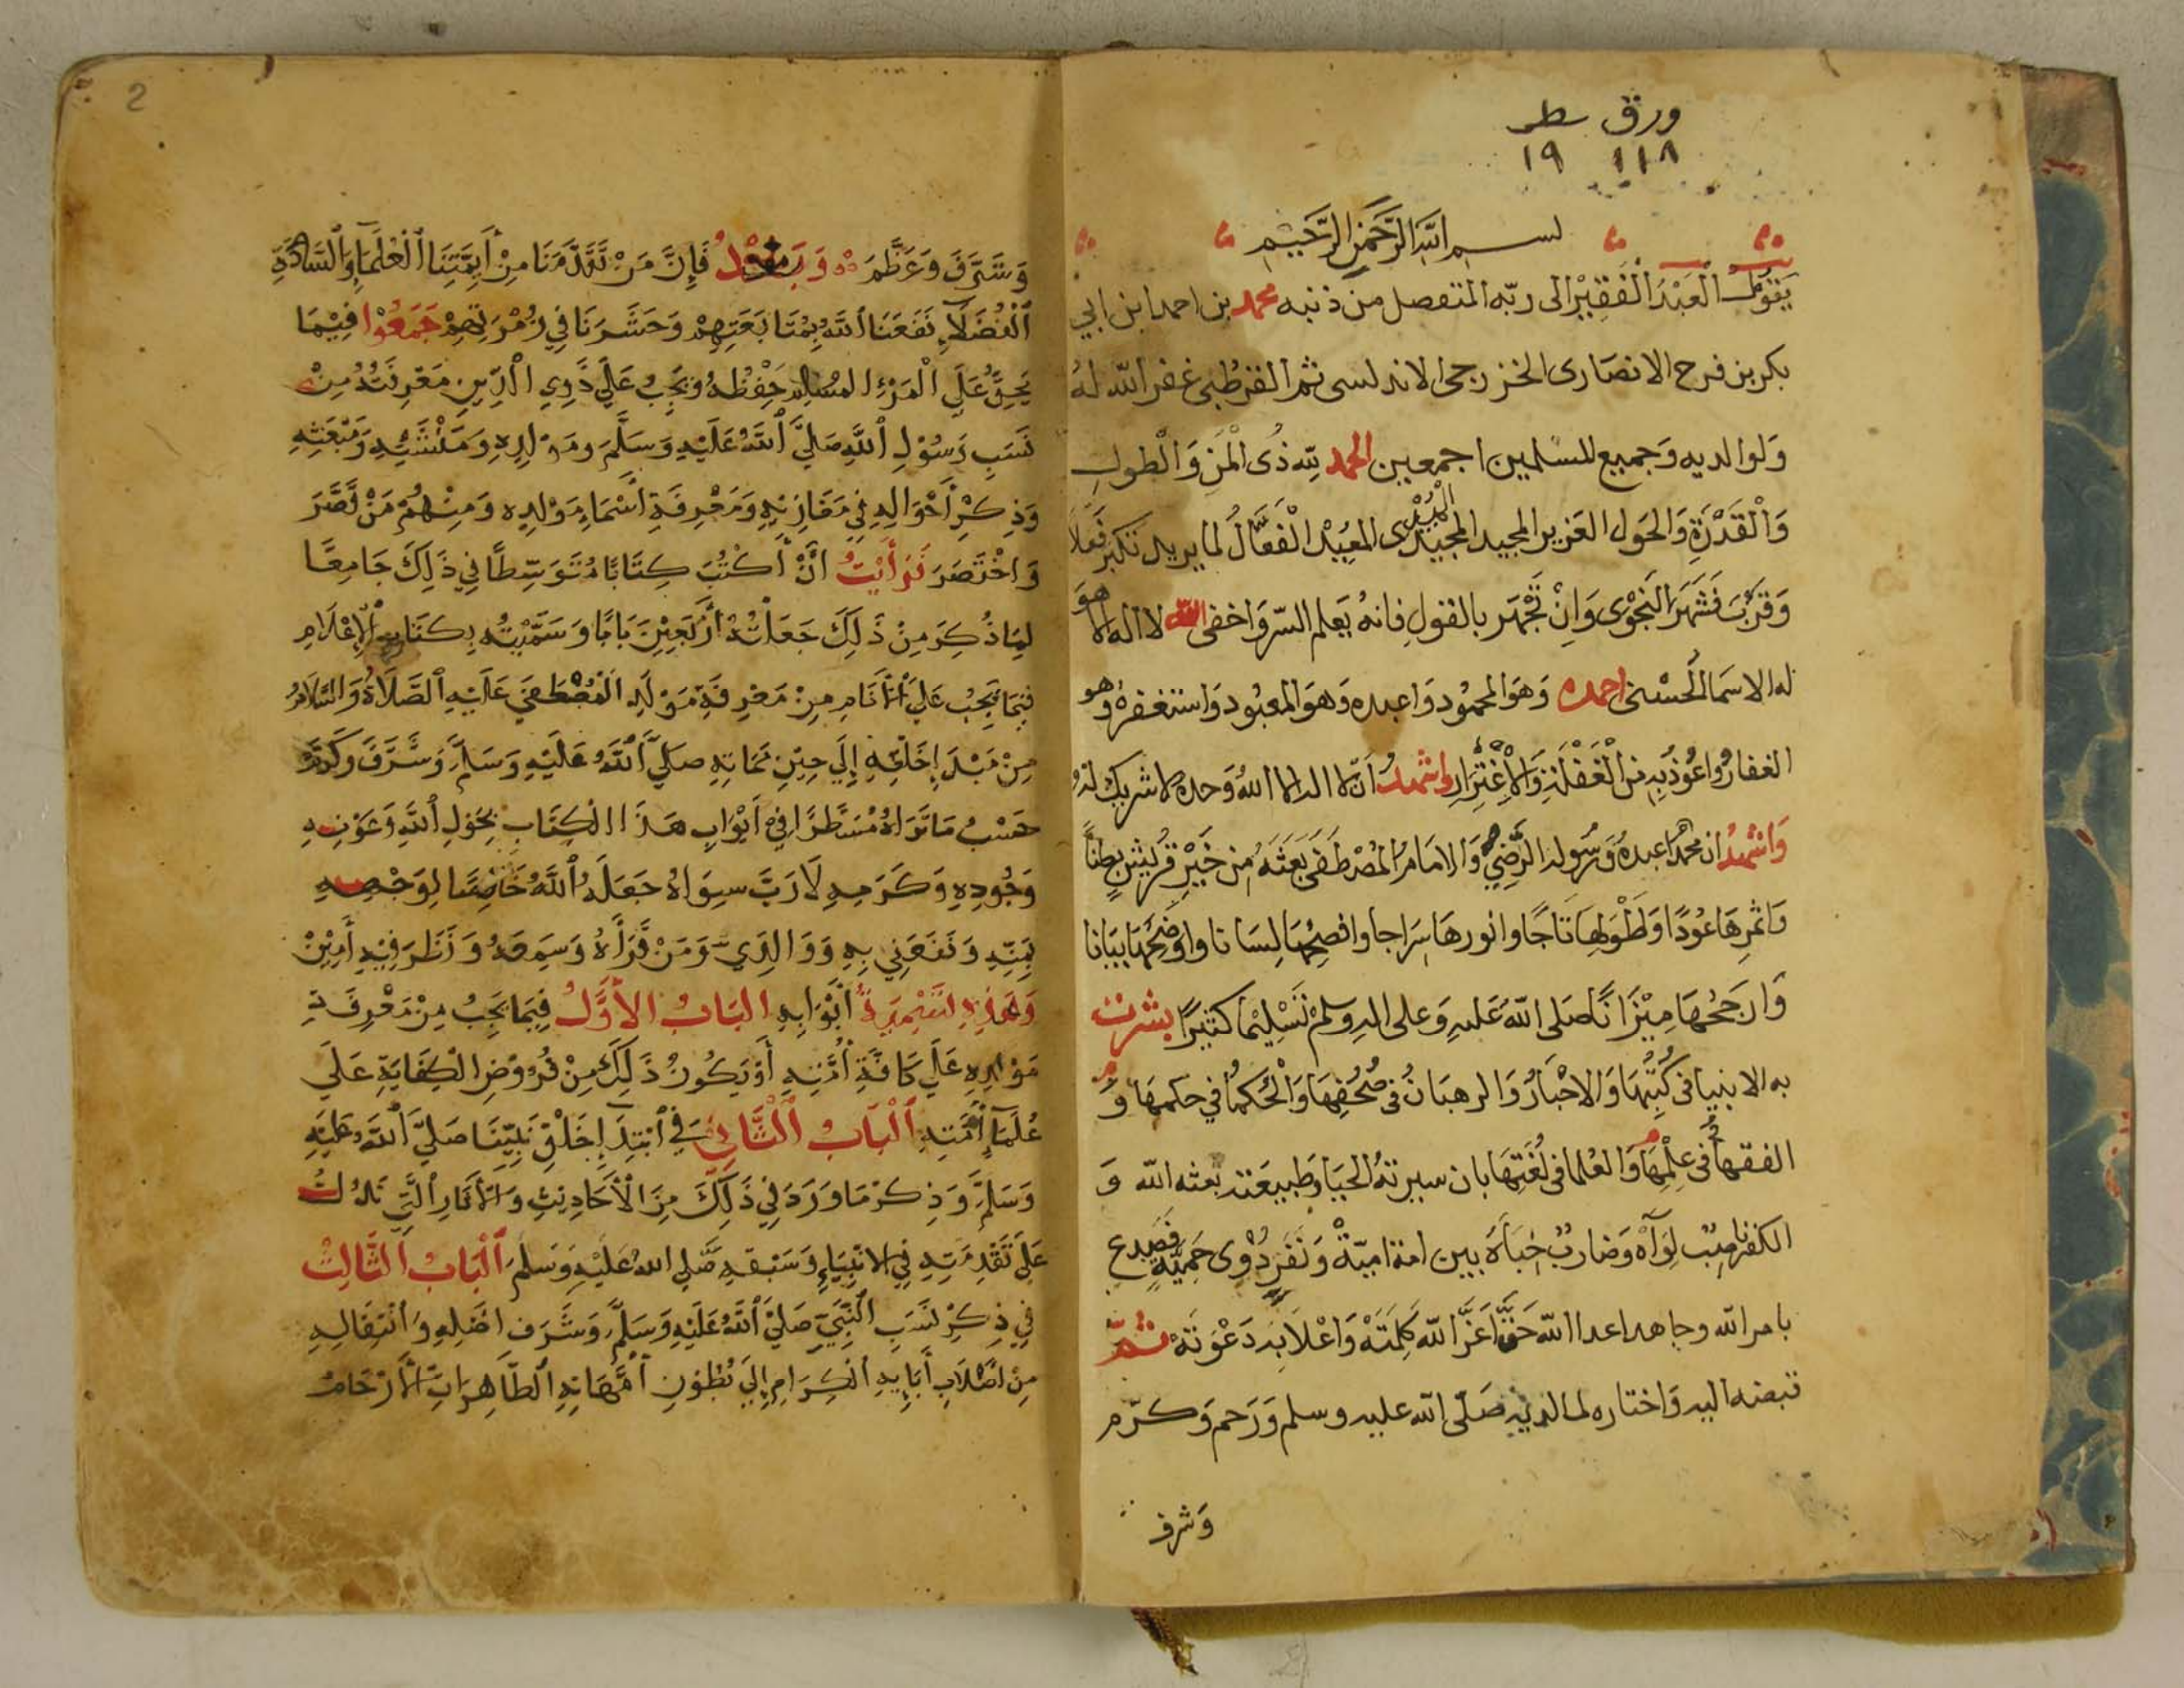 ورق سطر
١١٨ ١٩
بسم الله الرحمن الرحيم
يقول العبد الفقير الى ربه المتنصل من ذنبه محمد بن احمد ابن ابي
بكر بن فرح الانصارى الخزرجى الاندلسى ثم القرطبى غفر الله له
ولوالديه وجميع المسلمين اجمعين الحمد لله ذى المن والطول
والقدرة والحول العزيز المجيد المبدى المعيد الفعال لما يريد تكبر فعلا
وقرب فشهر النجوى وان تجهر بالقول فانه يعلم السر واخفى الله لا اله الا هو
له الاسما الحسنى احمده وهو المحمود واعبده وهو المعبود واستغفره وهو
الغفار واعوذ به من الغفلة والاغترار واشهد ان لا اله الا الله وحده لا شريك له
واشهد ان محمدا عبده ورسوله الرضي والامام المصطفى بعثه من خير قريش بطنا
واثمرها عودا واطولها تاجا وانورها سراجا وافصحها لسانا واوضحها بيانا
وارجحها ميزانا صلى الله عليه وعلى اله وسلم تسليما كثيرا بشرت
به الانبيا فى كتبها والاحبار والرهبان فى صحفها والحكما في حكمها و
الفقها فى علمها والعلما فى لغتها بان سيرته الحيا وطبيعته بعثه الله و
الكفر ناصب لواه وضارب خباه بين امة امية ونفر ذوى حمية فصدع
بامر الله وجاهد اعدا الله حتى اعز الله كلمته واعلا به دعوته ثم
قبضه اليه واختاره لما لديه صلى الله عليه وسلم ورحم وكرم
وشرف
2
وشرف وعظم وبعد فإن من تقدمنا من أيمتنا العلماء والسادة
الفضلاء نفعنا الله بمتابعتهم وحشرنا في زمرتهم جمعوا فيما
يحق على المرء المسلم حفظه ويجب على ذوي الدين معرفته من
نسب رسول الله صلى الله عليه وسلم ومولده ومنشئه ومبعثه
وذكر أحواله في مغازيه ومعرفة أسماء مولده ومنهم من قصر
واختصر فرأيت أن أكتب كتابا متوسطا في ذلك جامعا
لما ذكر من ذلك جعلته أربعين بابا وسميته بكتاب الإعلام
فيما يجب على الأنام من معرفة مولد المصطفى عليه الصلاة والسلام
من مبدإ خلقه إلى حين مماته صلى الله عليه وسلم وشرف وكرم
حسب ما تراه مسطرا في أبواب هذا الكتاب بحول الله وعونه
وجوده وكرمه لا رب سواه جعله الله خالصا لوجهه
بمنه ونفعني به ووالدي ومن قرأه وسمعه ونظر فيه أمين
وهذه تسمية أبوابه الباب الأول فيما يجب من معرفة
مولده على كافة أمته أو يكون ذلك من فروض الكفاية على
علماء أمته الباب الثاني في ابتداء خلق نبينا صلى الله عليه
وسلم وذكر ما ورد في ذلك من الأحاديث والأثار التي تدلك
على تقدمته في الانبياء وسبقه صلى الله عليه وسلم الباب الثالث
في ذكر نسب النبي صلى الله عليه وسلم وشرف اصله وانتقاله
من أصلاب أبايه الكرام إلى بطون أمهاته الطاهرات الأرحام